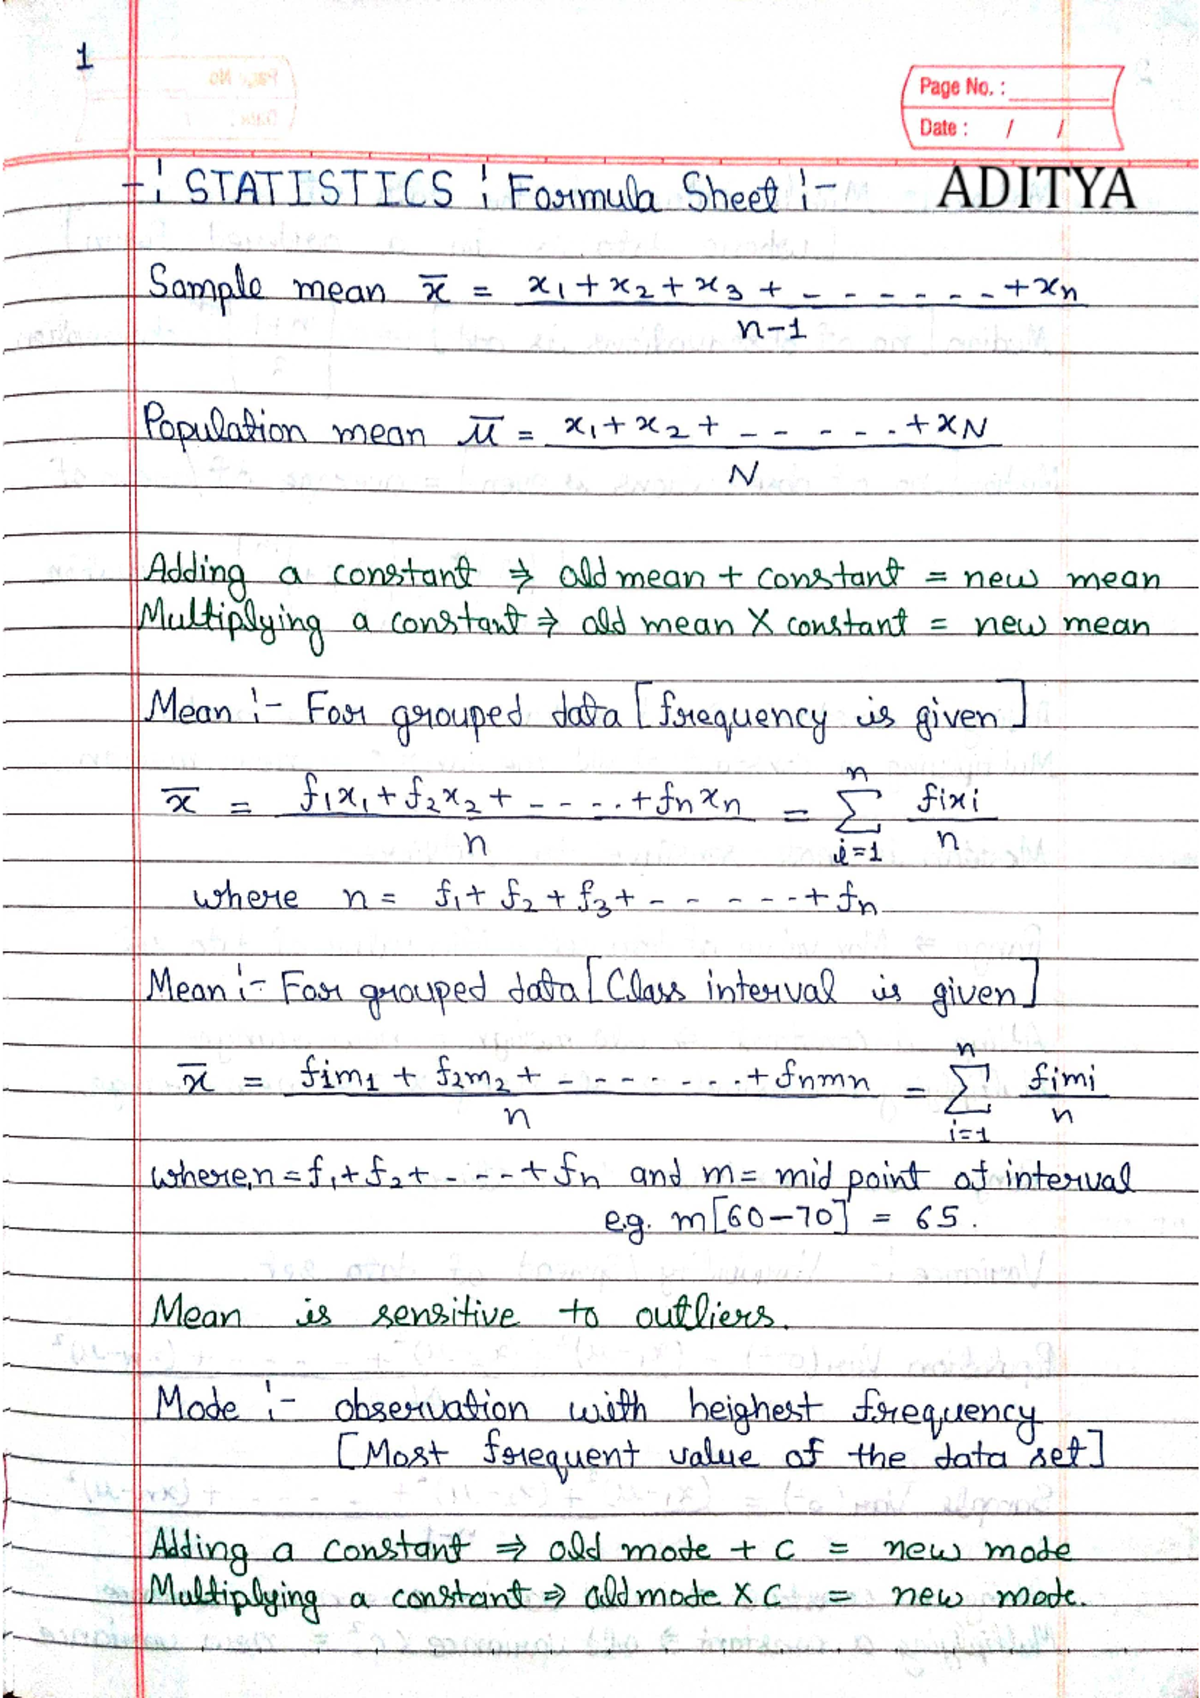 1
Page No. :
Date : / /
ADITYA
-: STATISTICS : Formula Sheet :-
Sample mean x̄ = x₁ + x₂ + x₃ + - - - - - - - + xₙ
n-1
Population mean μ̄ = x₁ + x₂ + - - - - - - + x_N
N
Adding a constant ⇒ old mean + constant = new mean
Multiplying a constant ⇒ old mean X constant = new mean
Mean :- For grouped data [frequency is given]
x̄ = f₁x₁ + f₂x₂ + - - - - . + fₙxₙ = n ∑ i=1 fixi
n n
where n = f₁ + f₂ + f₃ + - - - - - - + fₙ
Mean :- For grouped data [Class interval is given]
x̄ = f₁m₁ + f₂m₂ + - - - - - . - - . + fₙmₙ = n ∑ i=1 fimi
n n
where, n = f₁ + f₂ + - - - - + fₙ and m = mid point of interval
e.g. m[60-70] = 65.
Mean is sensitive to outliers.
Mode :- observation with heighest frequency
[Most frequent value of the data set]
Adding a constant ⇒ old mode + c = new mode
Multiplying a constant ⇒ old mode X C = new mode.